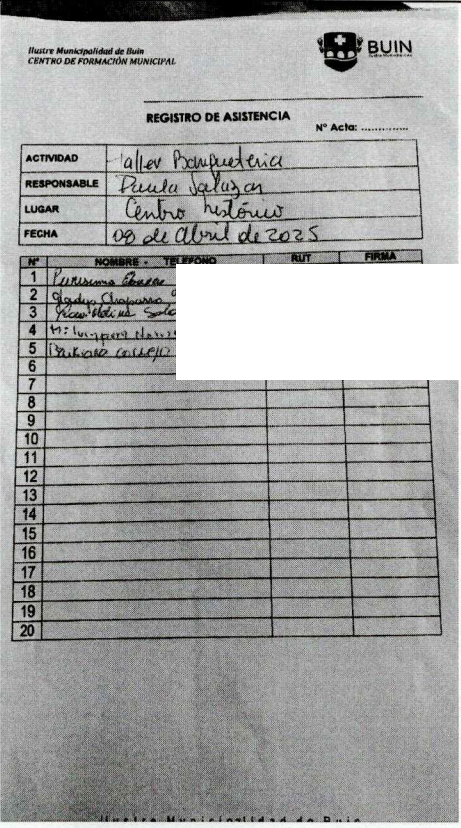 Ilustre Municipalidad de Buin
CENTRO DE FORMACIÓN MUNICIPAL
BUIN
REGISTRO DE ASISTENCIA
N° Acta: ..............
ACTIVIDAD Taller Banqueteria
RESPONSABLE Paula Salazar
LUGAR Centro histórico
FECHA 08 de Abril de 2025
N° NOMBRE - TELEFONO RUT FIRMA
1 Purisima
2 Gladys Chaparro
3 Molina
4
5
6
7
8
9
10
11
12
13
14
15
16
17
18
19
20
Ilustre Municipalidad de Buin